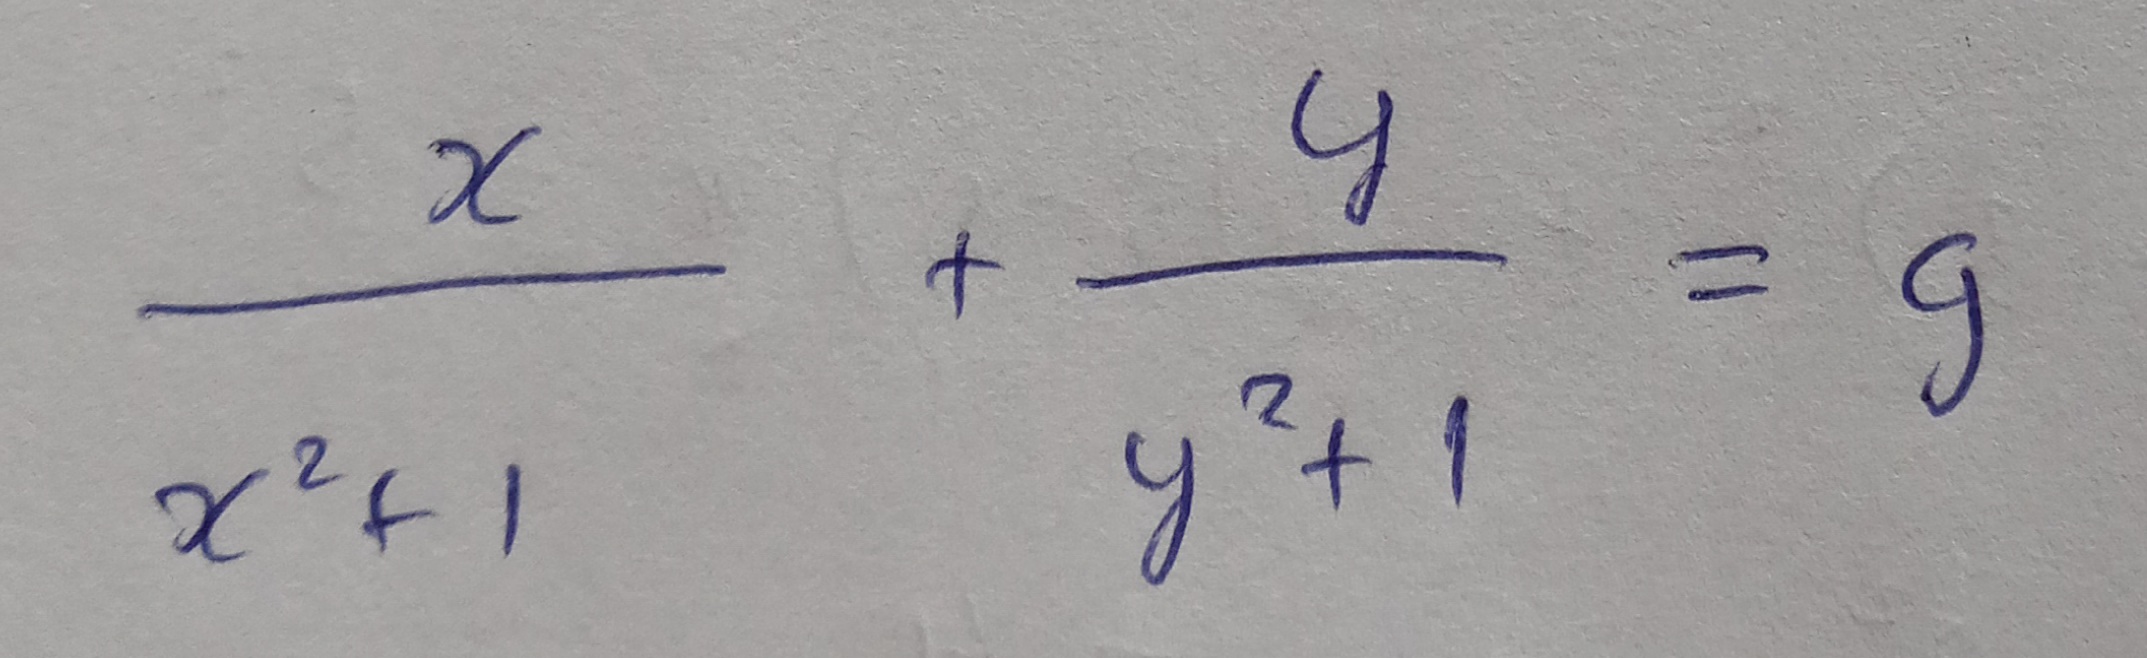 x/(x²+1) + y/(y²+1) = g